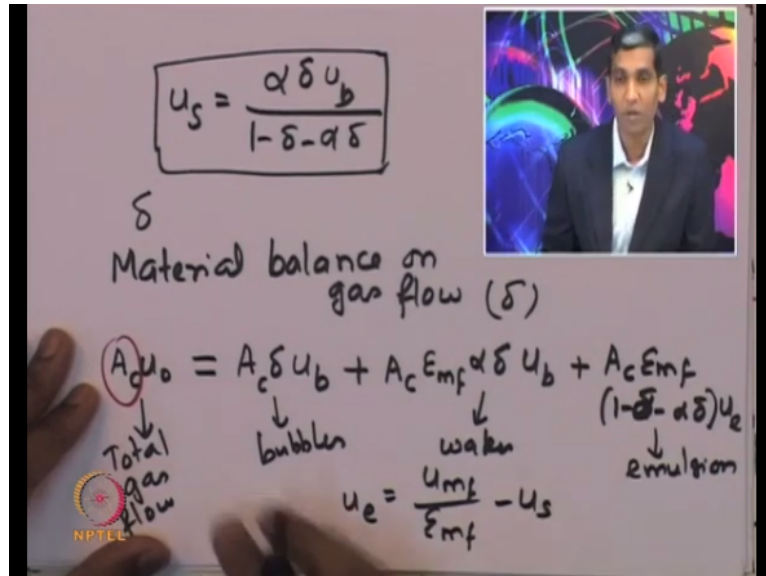 u_s = αδu_b / (1-δ-αδ)
δ
Material balance on
gas flow (δ)
A_c u_0 = A_c δ u_b + A_c ε_mf αδ u_b + A_c ε_mf
(1-δ-αδ)u_e
↓ ↓ ↓ ↓
Total gas flow
bubbles
wakes
emulsion
u_e = u_mf / ε_mf - u_s
NPTEL